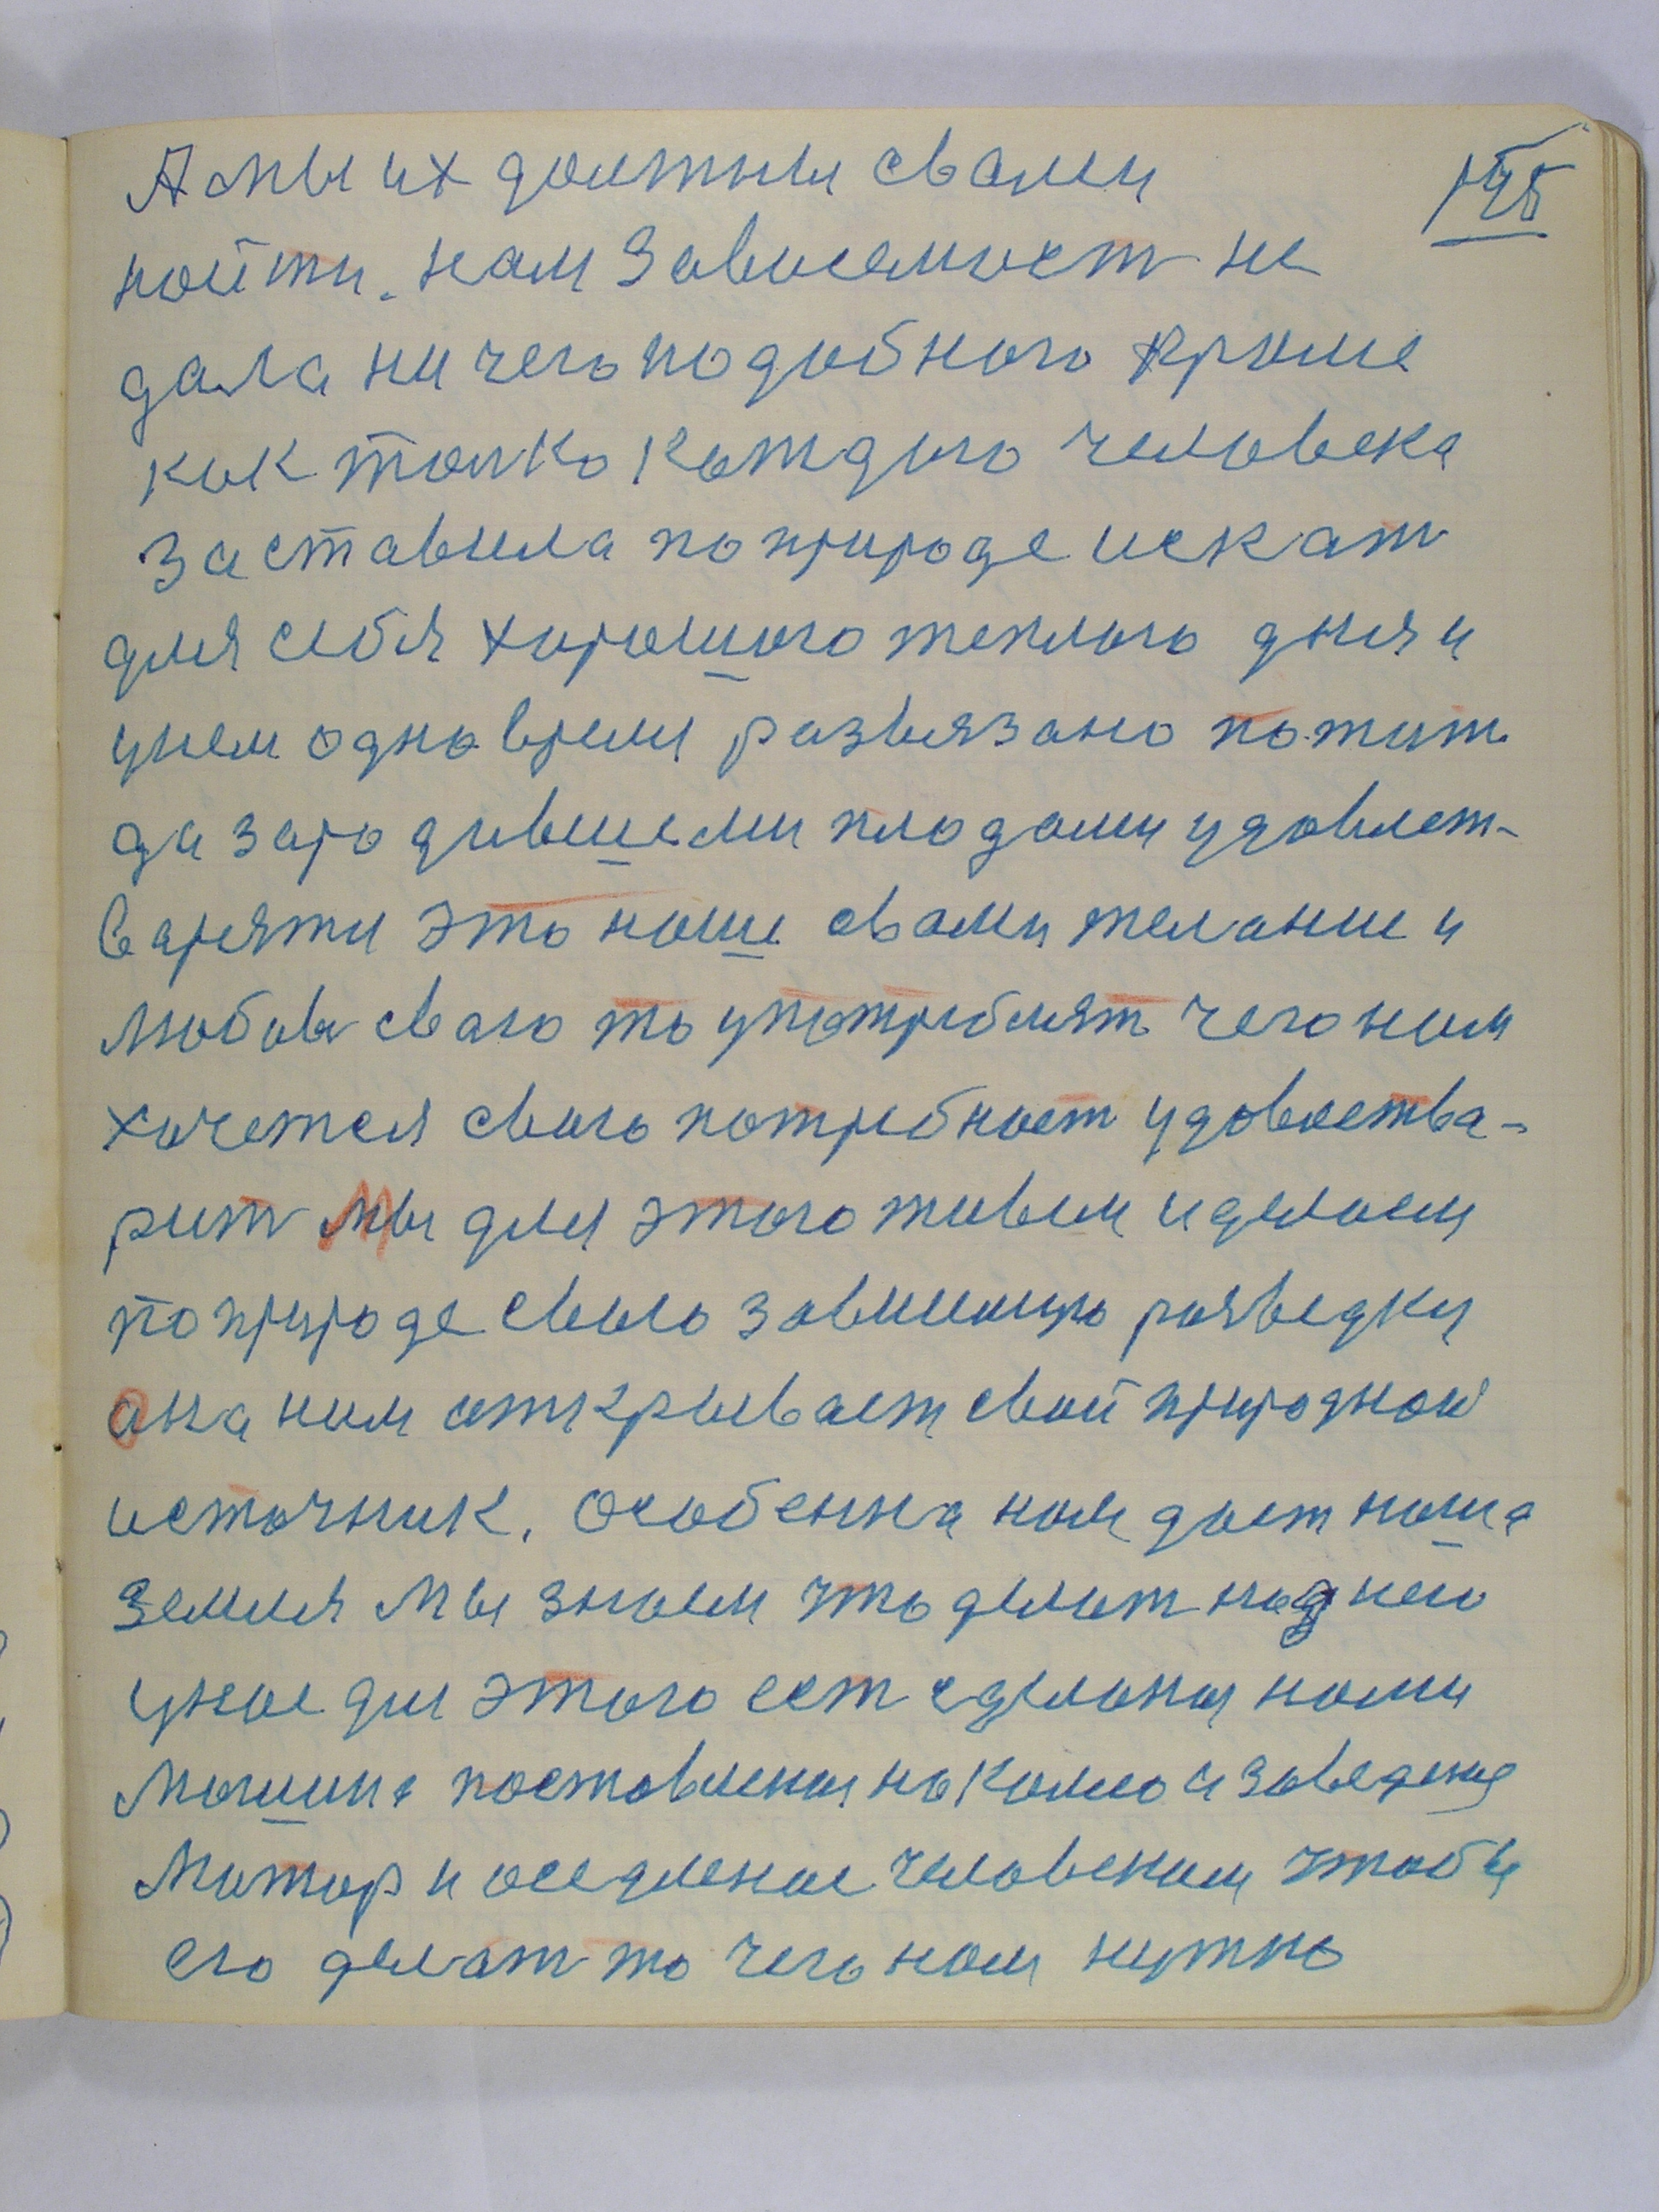 195
А мы их должны свами
найти. нам Зависемост не
дала ни чего подобного кроме
как толко каждого человека
заставила по природе искат
для себя хорошого теплого дня и
унем одно время развязано пожит
да зародившеми плодами удовлет-
варяти это наше свами желание и
любов сваю то употреблят чего нам
хочется свою потребност удовлетва-
рит Мы для этого живем и делаем
по природе свою зависимую разведку
она нам открывает свой природной
источник. Особенна нам дает наша
земля Мы знаем что делат над нею
унас для этого ест сделана нами
Машина поставлена на калесо и заведена
Матор и оседленое человеком чтобы
его делат то чего нам нужно